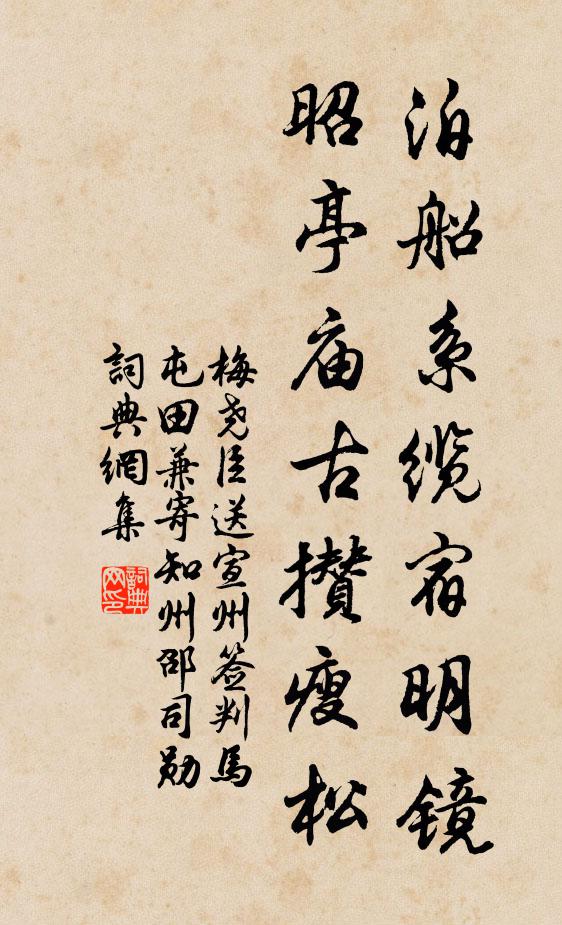 泊船系缆宿明镜
昭亭庙古攒瘦松
梅尧臣送宣州签判馬
屯田兼寄知州邵司勋
詞典網集
詞典
网印